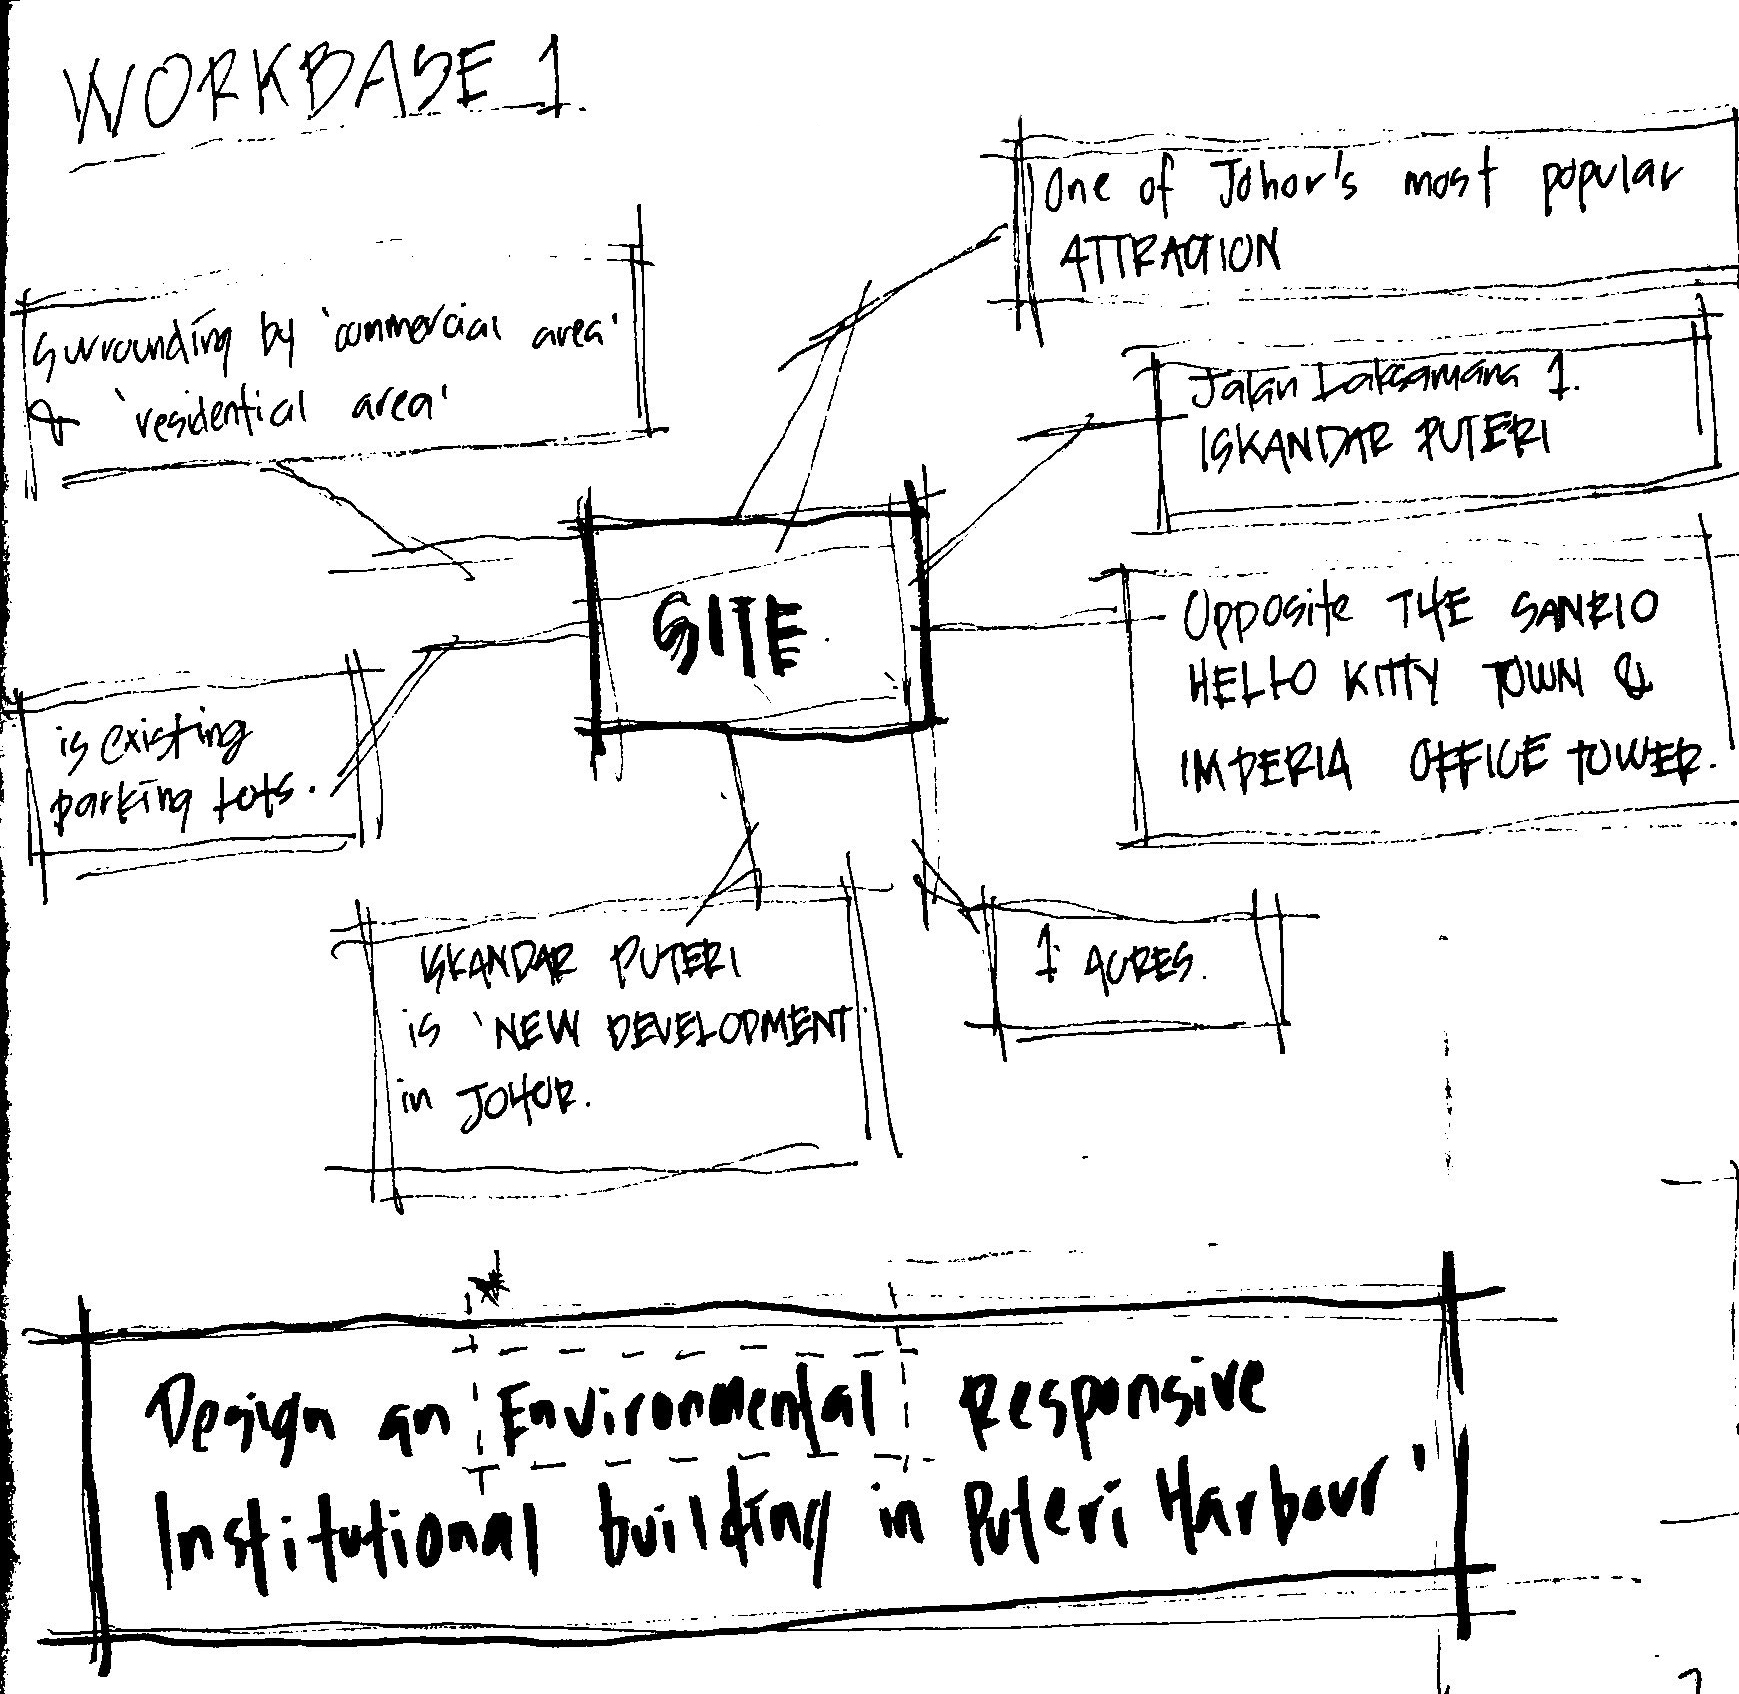 WORKBASE 1.
One of Johor's most popular
ATTRACTION
Surrounding by 'commercial area'
& 'residential area'
Jalan Laksamana 1.
ISKANDAR PUTERI
SITE.
Opposite THE SANRIO
HELLO KITTY TOWN &
IMPERIA OFFICE TOWER.
is existing
parking lots.
ISKANDAR PUTERI
is 'NEW DEVELOPMENT'
in JOHOR.
1 ACRES.
Design an Environmental Responsive
Institutional building in Puteri Harbour'